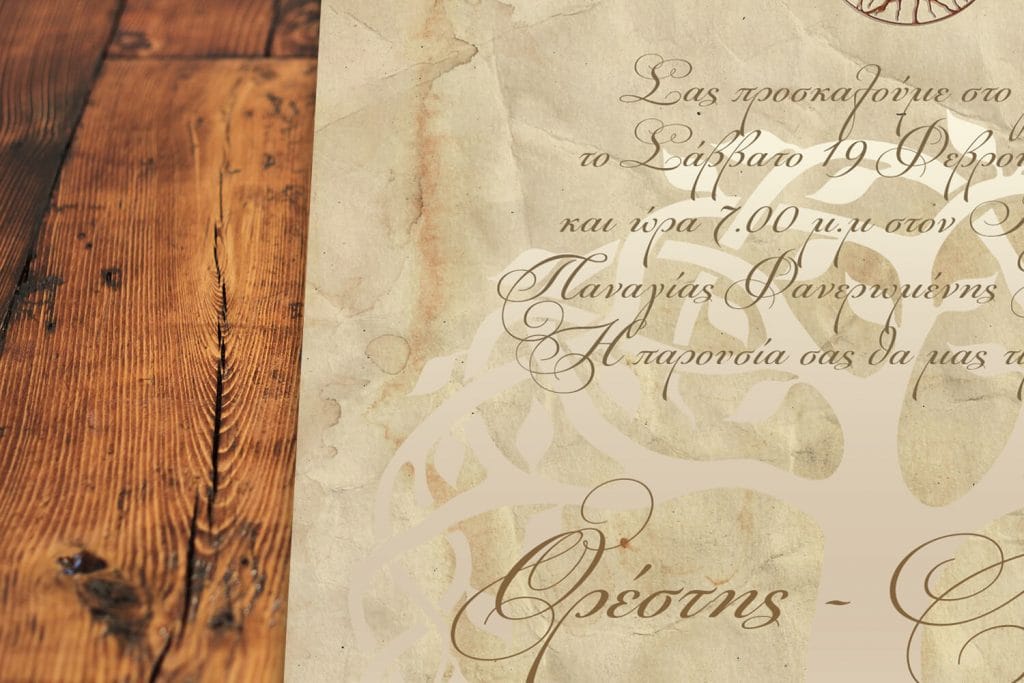 Σας προσκαλούμε στο
το Σάββατο 19
και ώρα 7.00 μ.μ στόν
Παναγίας Φανερωμένης
Η παρουσία σας θα μας
Ορέστης -